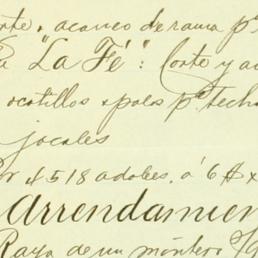 orte, acarreo de rama pª
"La Fé": Corte y ac
ocotillos y palos pª tech
jacales
or 4518 adobes, á 6$ x
Arrendamien
Raya de un montero